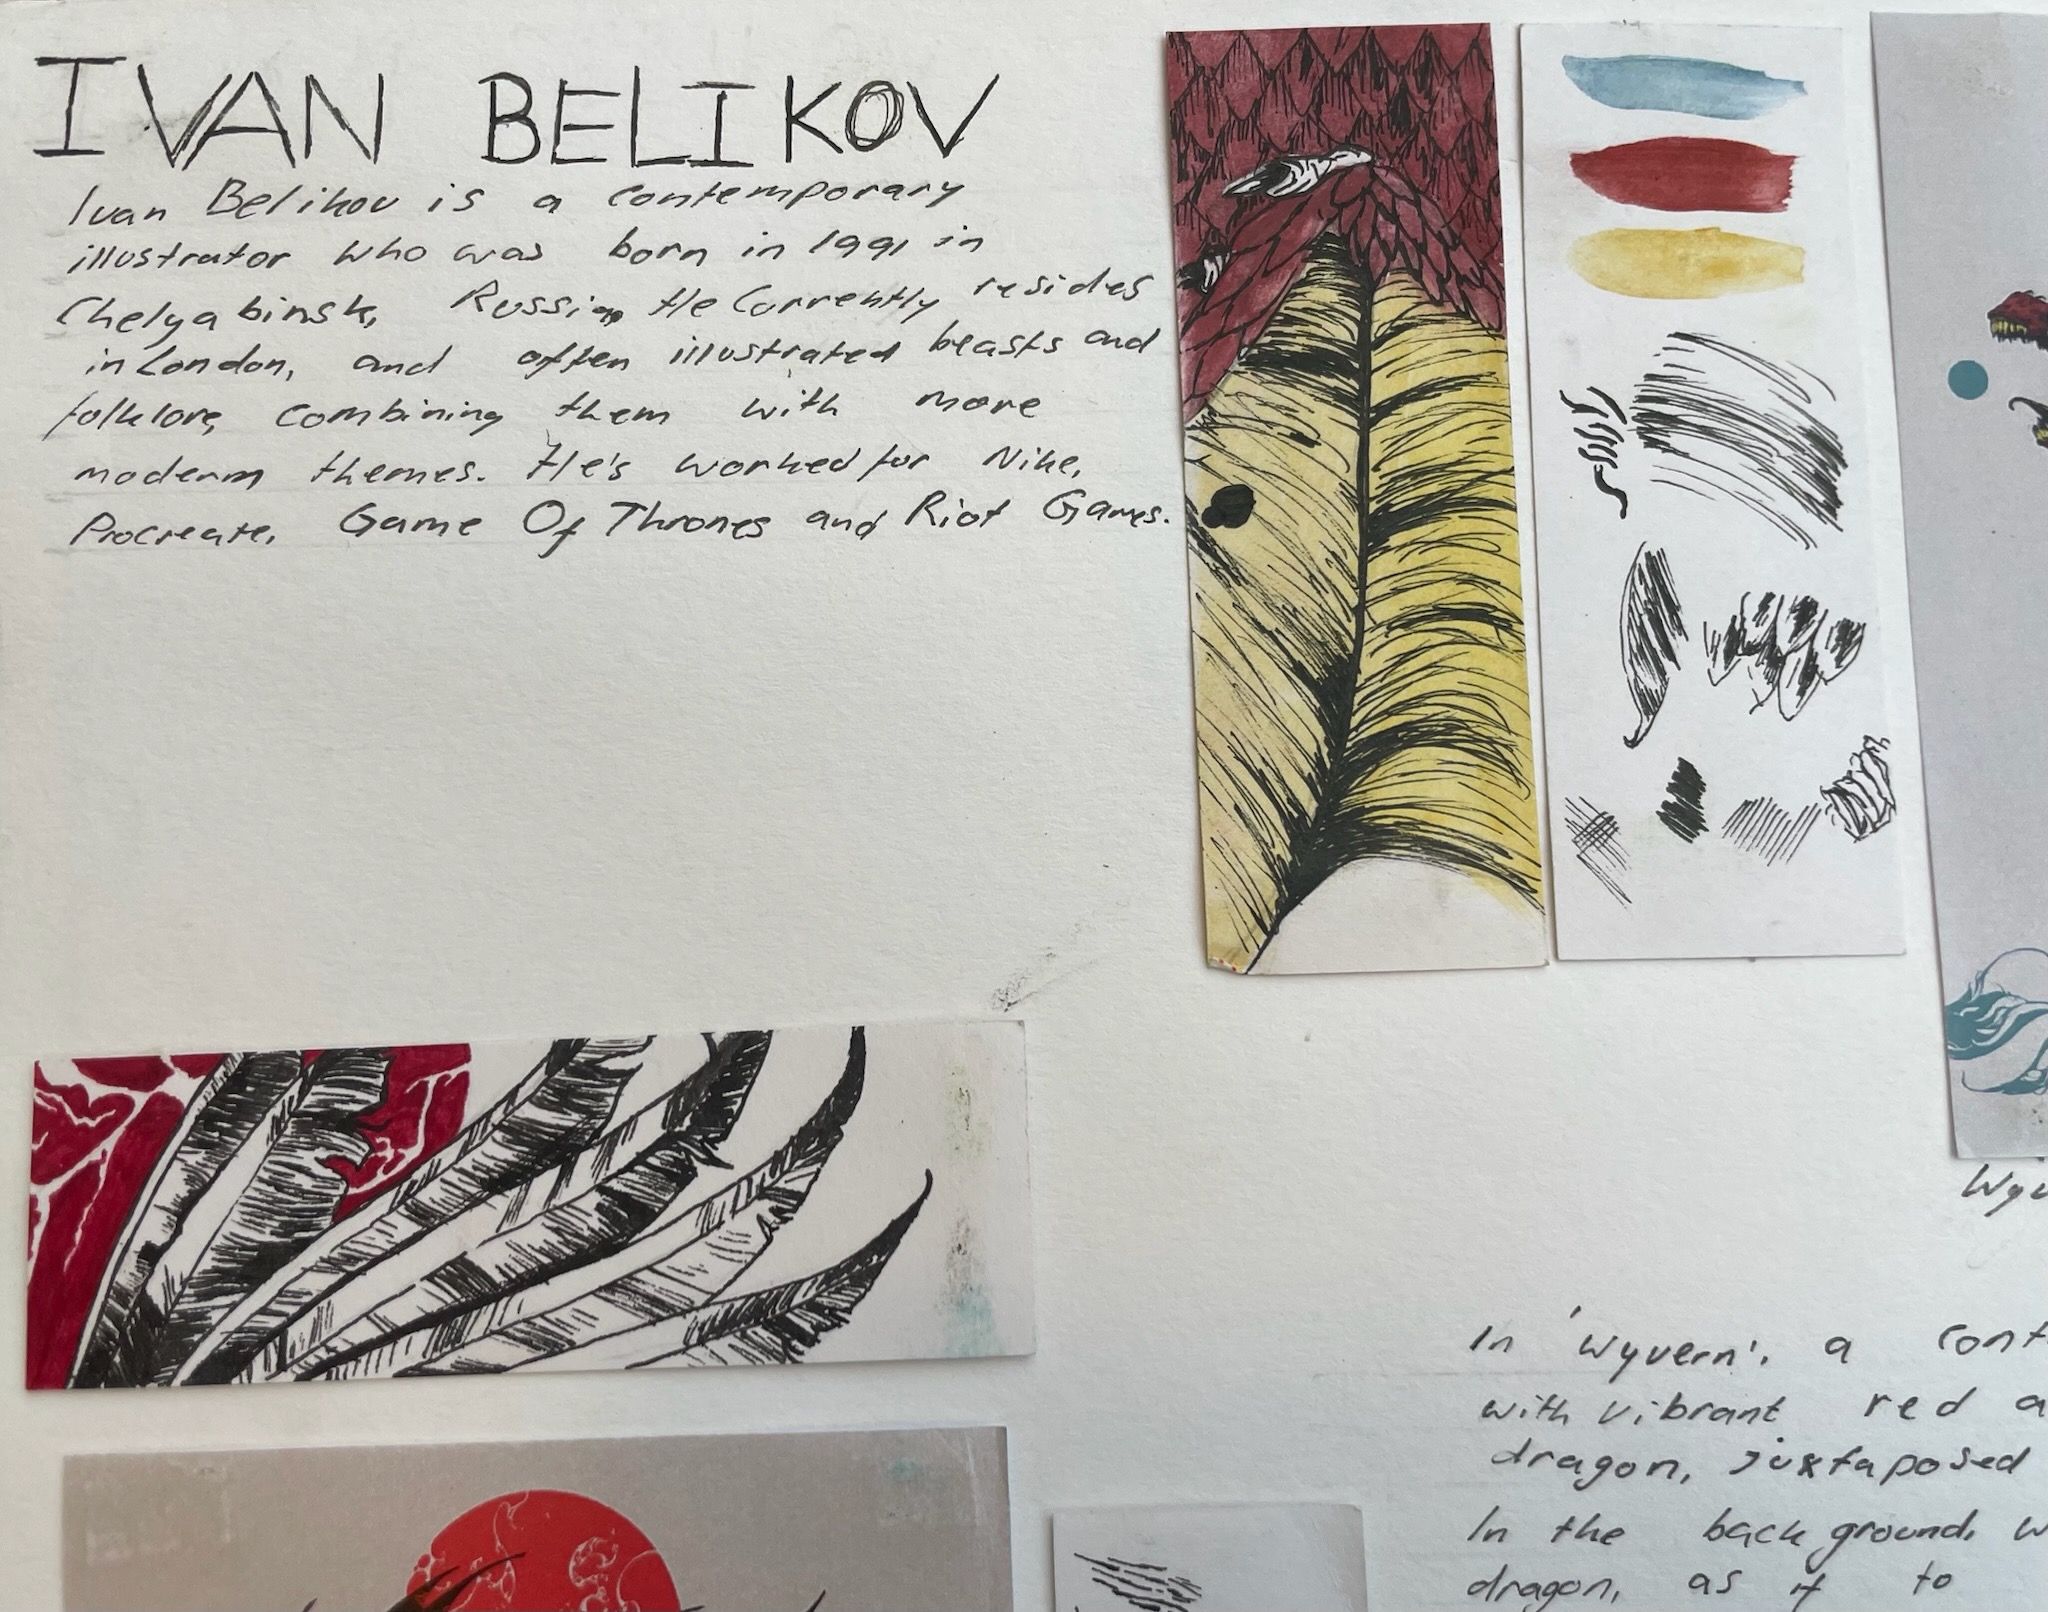 IVAN BELIKOV
Ivan Belikov is a contemporary
illustrator who was born in 1991 in
Chelyabinsk, Russia. He currently resides
in London, and often illustrated beasts and
folklore, combining them with more
modern themes. He's worked for Nike,
Procreate, Game Of Thrones and Riot Games.
Wyv
In 'Wyvern', a cont
with vibrant red a
dragon, juxtaposed
In the background, w
dragon, as if to